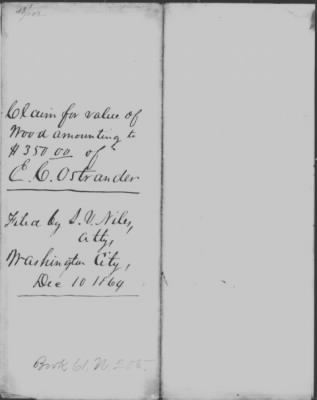 Claim for value of
Wood amounting to
$350.00 of
E. C. Ostrander
Filed by S. V. Niles,
Atty,
Washington City,
Dec 10 1869
Book 61. N.